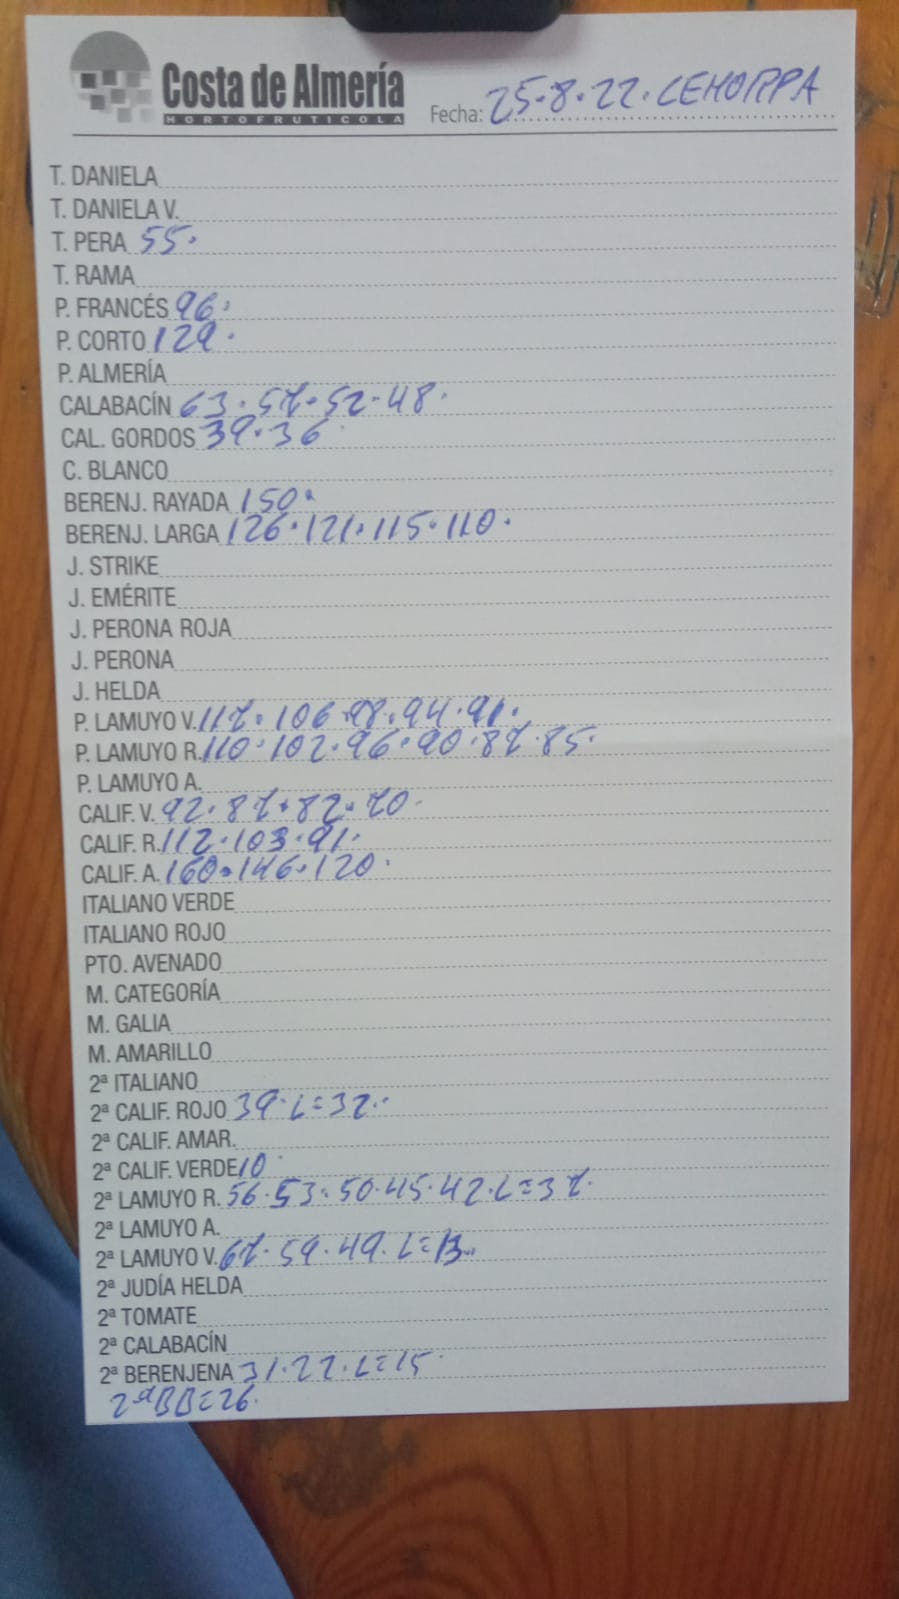 Costa de Almería
HORTOFRUTICOLA
Fecha: 25.8.22. CEHORPA
T. DANIELA
T. DANIELA V.
T. PERA 55.
T. RAMA
P. FRANCÉS 96.
P. CORTO 129.
P. ALMERÍA
CALABACÍN 63.57.52.48.
CAL. GORDOS 39.36
C. BLANCO
BERENJ. RAYADA 150.
BERENJ. LARGA 126.121.115.110.
J. STRIKE
J. EMÉRITE
J. PERONA ROJA
J. PERONA
J. HELDA
P. LAMUYO V. 117.106.98.94.91.
P. LAMUYO R. 110.102.96.90.87.85.
P. LAMUYO A.
CALIF. V. 92.87.82.70.
CALIF. R. 112.103.91.
CALIF. A. 160.146.120.
ITALIANO VERDE
ITALIANO ROJO
PTO. AVENADO
M. CATEGORÍA
M. GALIA
M. AMARILLO
2ª ITALIANO
2ª CALIF. ROJO 39.L=32..
2ª CALIF. AMAR.
2ª CALIF. VERDE 10
2ª LAMUYO R. 56.53.50.45.42.L=37.
2ª LAMUYO A.
2ª LAMUYO V. 67.59.49.L=13..
2ª JUDÍA HELDA
2ª TOMATE
2ª CALABACÍN
2ª BERENJENA 31.22.L=15.
2ªBB=26.